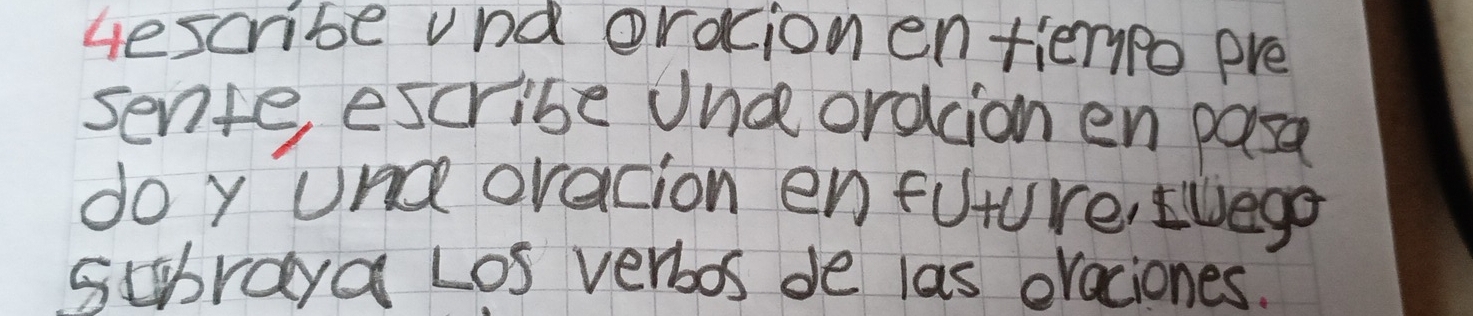 4escribe una oracion en tiempo pre
sente, escribe una oracion en pasa
do y una oracion en future, luego
subraya Los verbos de las oraciones.